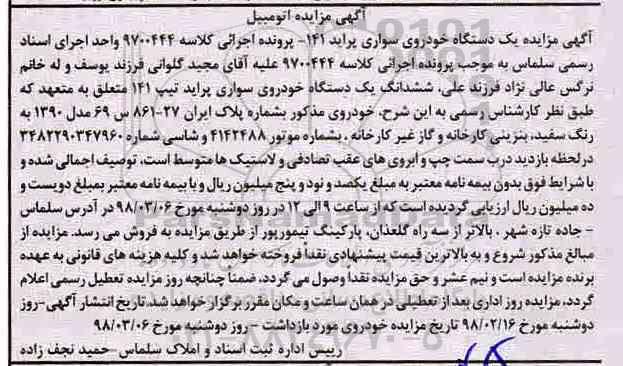 آگهی مزایده اتومبیل
آگهی مزایده یک دستگاه خودروی سواری پراید ۱۴۱- پرونده اجرائی کلاسه ۹۷۰۰۴۴۴ واحد اجرای اسناد
رسمی سلماس به موجب پرونده اجرائی کلاسه ۹۷۰۰۴۴۴ علیه آقای مجید گلوانی فرزند یوسف و له خانم
نرگس عالی نژاد فرزند علی، ششدانگ یک دستگاه خودروی سواری پراید تیپ ۱۴۱ متعلق به متعهد که
طبق نظر کارشناس رسمی به این شرح، خودروی مذکور بشماره پلاک ایران ۲۷-۸۶۱ س ۶۹ مدل ۱۳۹۰ به
رنگ سفید، بنزینی کارخانه و گاز غیر کارخانه ، بشماره موتور ۴۱۴۲۴۸۸ و شاسی شماره ۳۴۸۲۲۹۰۳۴۷۹۶۰
در لحظه بازدید درب سمت چپ و ابروی های عقب تصادفی و لاستیک ها متوسط است، توصیف اجمالی شده و
با شرایط فوق بدون بیمه نامه معتبر به مبلغ یکصد و نود و پنج میلیون ریال و با بیمه نامه معتبر بمبلغ دویست و
ده میلیون ریال ارزیابی گردیده است که از ساعت ۹ الی ۱۲ در روز دوشنبه مورخ ۹۸/۰۳/۰۶ در آدرس سلماس
- جاده تازه شهر ، بالاتر از سه راه گلعذان، پارکینگ تیمورپور از طریق مزایده به فروش می رسد. مزایده از
مبالغ مذکور شروع و به بالاترین قیمت پیشنهادی نقداً فروخته خواهد شد و کلیه هزینه های قانونی به عهده
برنده مزایده است و نیم عشر و حق مزایده نقداً وصول می گردد، ضمناً چنانچه روز مزایده تعطیل رسمی اعلام
گردد، مزایده روز اداری بعد از تعطیلی در همان ساعت و مکان مقرر برگزار خواهد شد. تاریخ انتشار آگهی-روز
دوشنبه مورخ ۹۸/۰۲/۱۶ تاریخ مزایده خودروی مورد بازداشت - روز دوشنبه مورخ ۹۸/۰۳/۰۶
رییس اداره ثبت اسناد و املاک سلماس-حمید نجف زاده